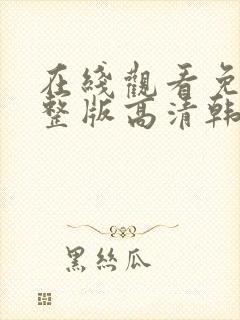 在綫觀看免
整版高清韩
黑絲瓜